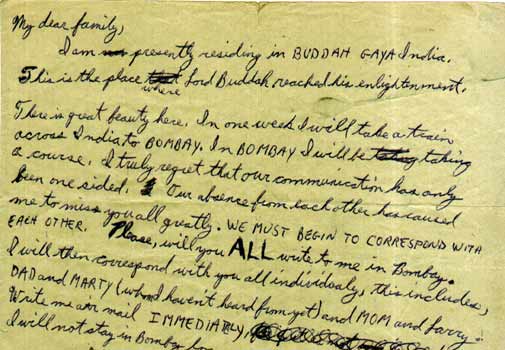 My dear family,
I am presently residing in BUDDAH GAYA India.
This is the place where Lord Buddah reached his enlightenment.
There is great beauty here. In one week I will take a train
across India to BOMBAY. In BOMBAY I will be taking
a course. I truly regret that our communication has only
been one sided. Our absence from each other has caused
me to miss you all greatly. WE MUST BEGIN TO CORRESPOND WITH
EACH OTHER. Please, will you ALL write to me in Bombay.
I will then correspond with you all individualy, this includes,
DAD and MARTY (whom I haven't heard from yet) and MOM and Larry.
Write me air mail IMMEDIATELY,
I will not stay in Bombay